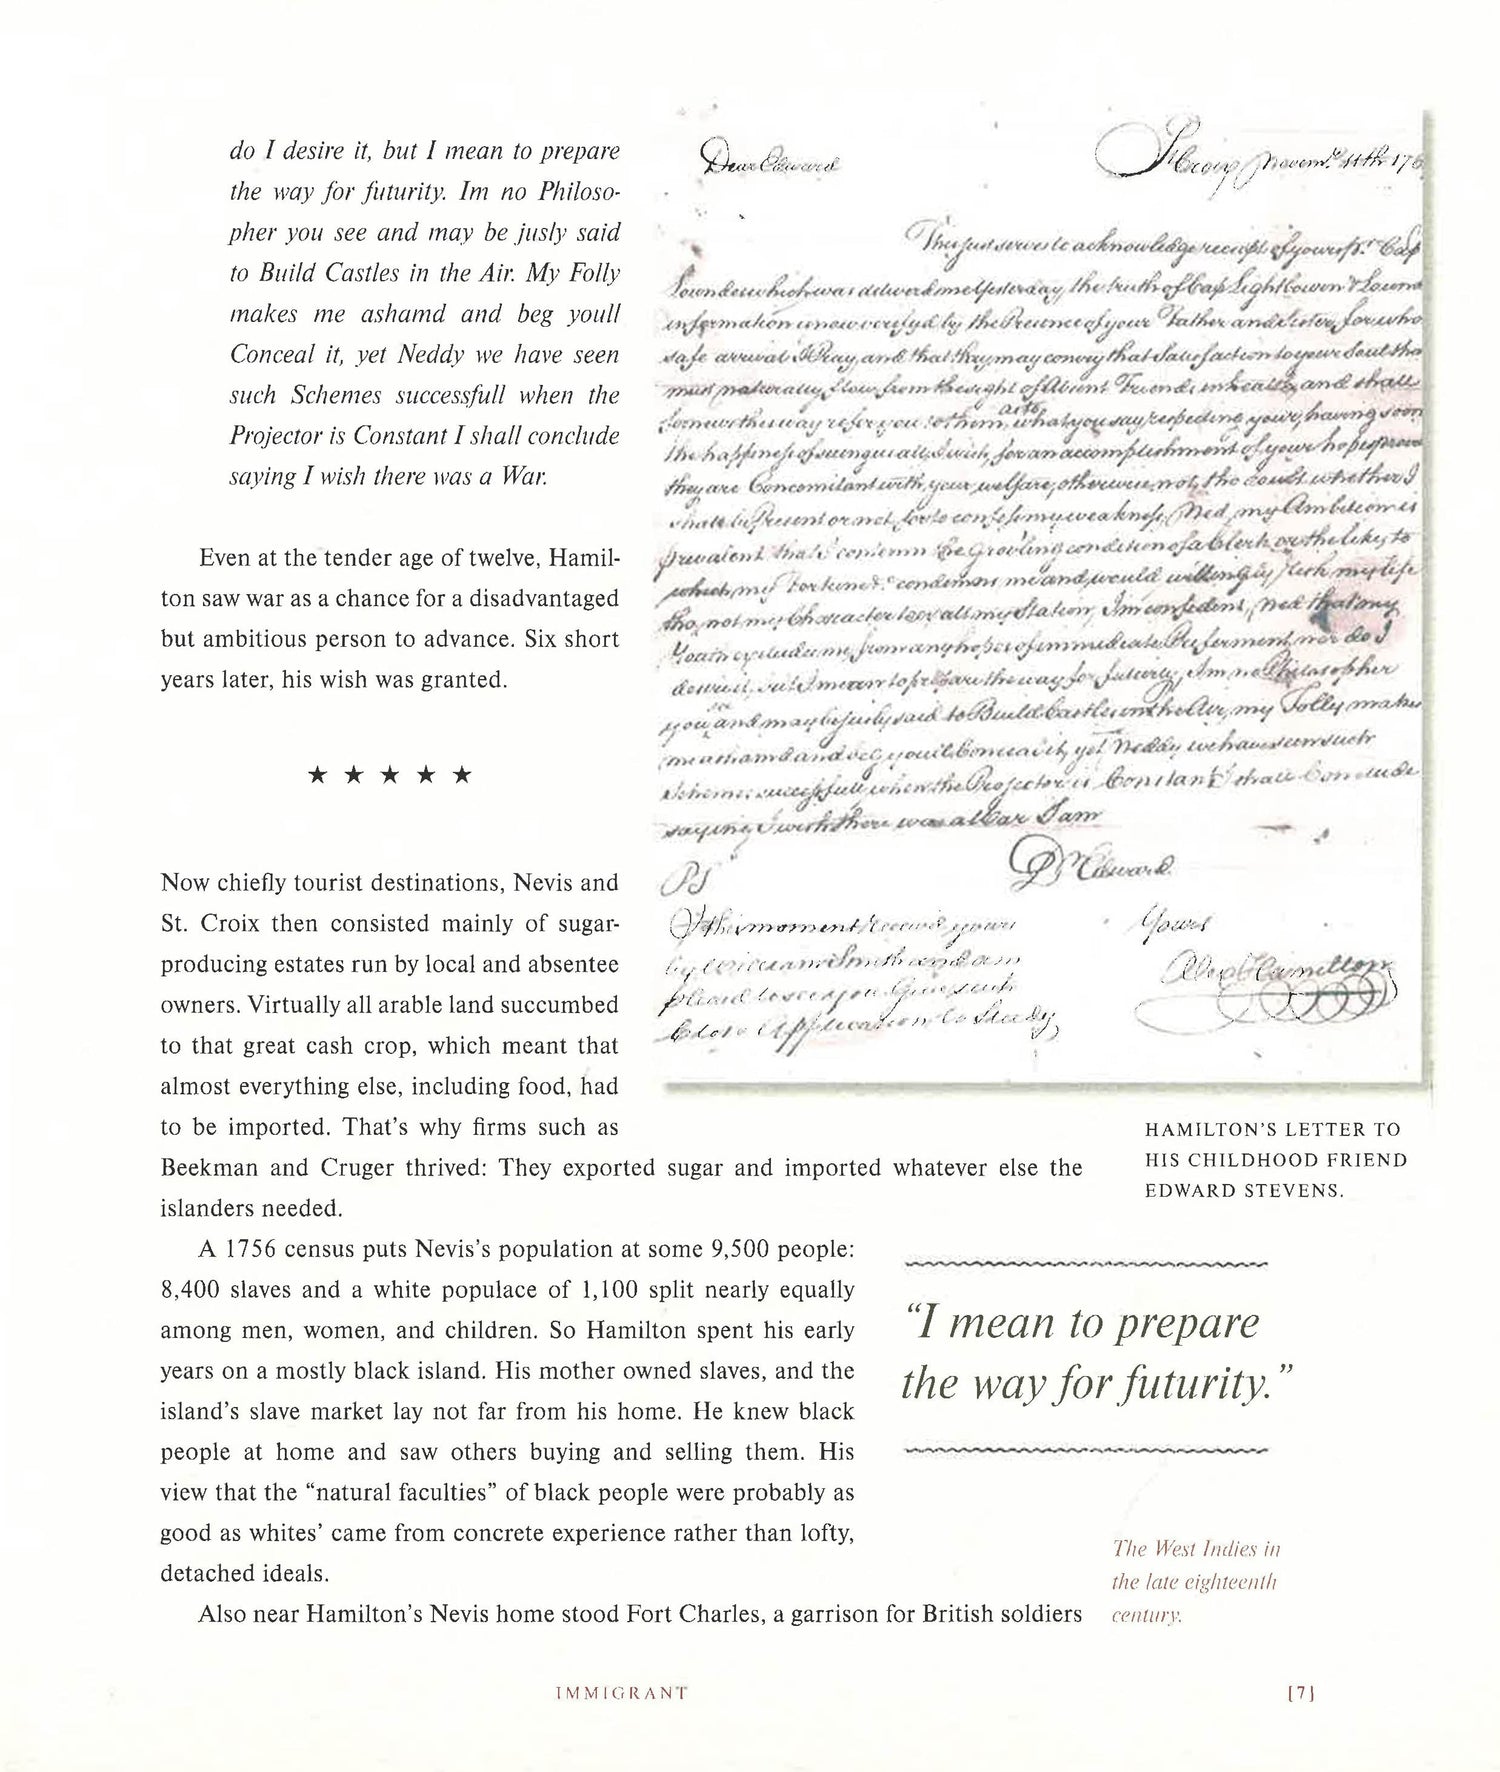 do I desire it, but I mean to prepare
the way for futurity. Im no Philoso-
pher you see and may be jusly said
to Build Castles in the Air. My Folly
makes me ashamd and beg youll
Conceal it, yet Neddy we have seen
such Schemes successfull when the
Projector is Constant I shall conclude
saying I wish there was a War.
Even at the tender age of twelve, Hamil-
ton saw war as a chance for a disadvantaged
but ambitious person to advance. Six short
years later, his wish was granted.
★ ★ ★ ★ ★
Now chiefly tourist destinations, Nevis and
St. Croix then consisted mainly of sugar-
producing estates run by local and absentee
owners. Virtually all arable land succumbed
to that great cash crop, which meant that
almost everything else, including food, had
to be imported. That's why firms such as
Beekman and Cruger thrived: They exported sugar and imported whatever else the
islanders needed.
A 1756 census puts Nevis's population at some 9,500 people:
8,400 slaves and a white populace of 1,100 split nearly equally
among men, women, and children. So Hamilton spent his early
years on a mostly black island. His mother owned slaves, and the
island's slave market lay not far from his home. He knew black
people at home and saw others buying and selling them. His
view that the "natural faculties" of black people were probably as
good as whites' came from concrete experience rather than lofty,
detached ideals.
Also near Hamilton's Nevis home stood Fort Charles, a garrison for British soldiers
Dear Edward
St Croix Novemr. 11th 176
This just serves to acknowledge receipt of yours pr. Cap
Lowndes which was deliverd me Yesterday, the truth of Cap Lightbowen & Lownd
information is now verifyd by the Presence of your Father and Sister for who
safe arrival I Pray, and that they may convey that Satisfaction to your Soul tha
must naturally flow from the sight of Absent Friends in health, and shall
for news this way refer you to them, as to what you say respecting your having soon
the happiness of seeing us all, I wish, for an accomplishment of your hopes provi
they are Concomitant with your welfare, otherwise not, tho doubt whether I
shall be Present or not, for to confess my weakness, Ned, my Ambition is
prevalent that I contemn the grov'ling condition of a Clerk or the like, to
which my Fortune &c. condemns me and would willingly risk my life
tho not my Character to exalt my Station, Im confident, Ned that my
Youth excludes me from any hopes of immediate Preferment nor do I
desire it, but I mean to prepare the way for futurity, Im no Philosopher
you see and may be jusly said to Build Castles in the Air, my Folly makes
me ashamd and beg youll Conceal it, yet Neddy we have seen such
Schemes successfull when the Projector is Constant I shall Conclude
saying I wish there was a War I am
Dr Edward
PS
I this moment receivd yours
by William Smith and am
pleasd to see you Give such
Close Application to Study,
Yours
Alex Hamilton
HAMILTON'S LETTER TO
HIS CHILDHOOD FRIEND
EDWARD STEVENS.
"I mean to prepare
the way for futurity."
The West Indies in
the late eighteenth
century.
IMMIGRANT
[7]